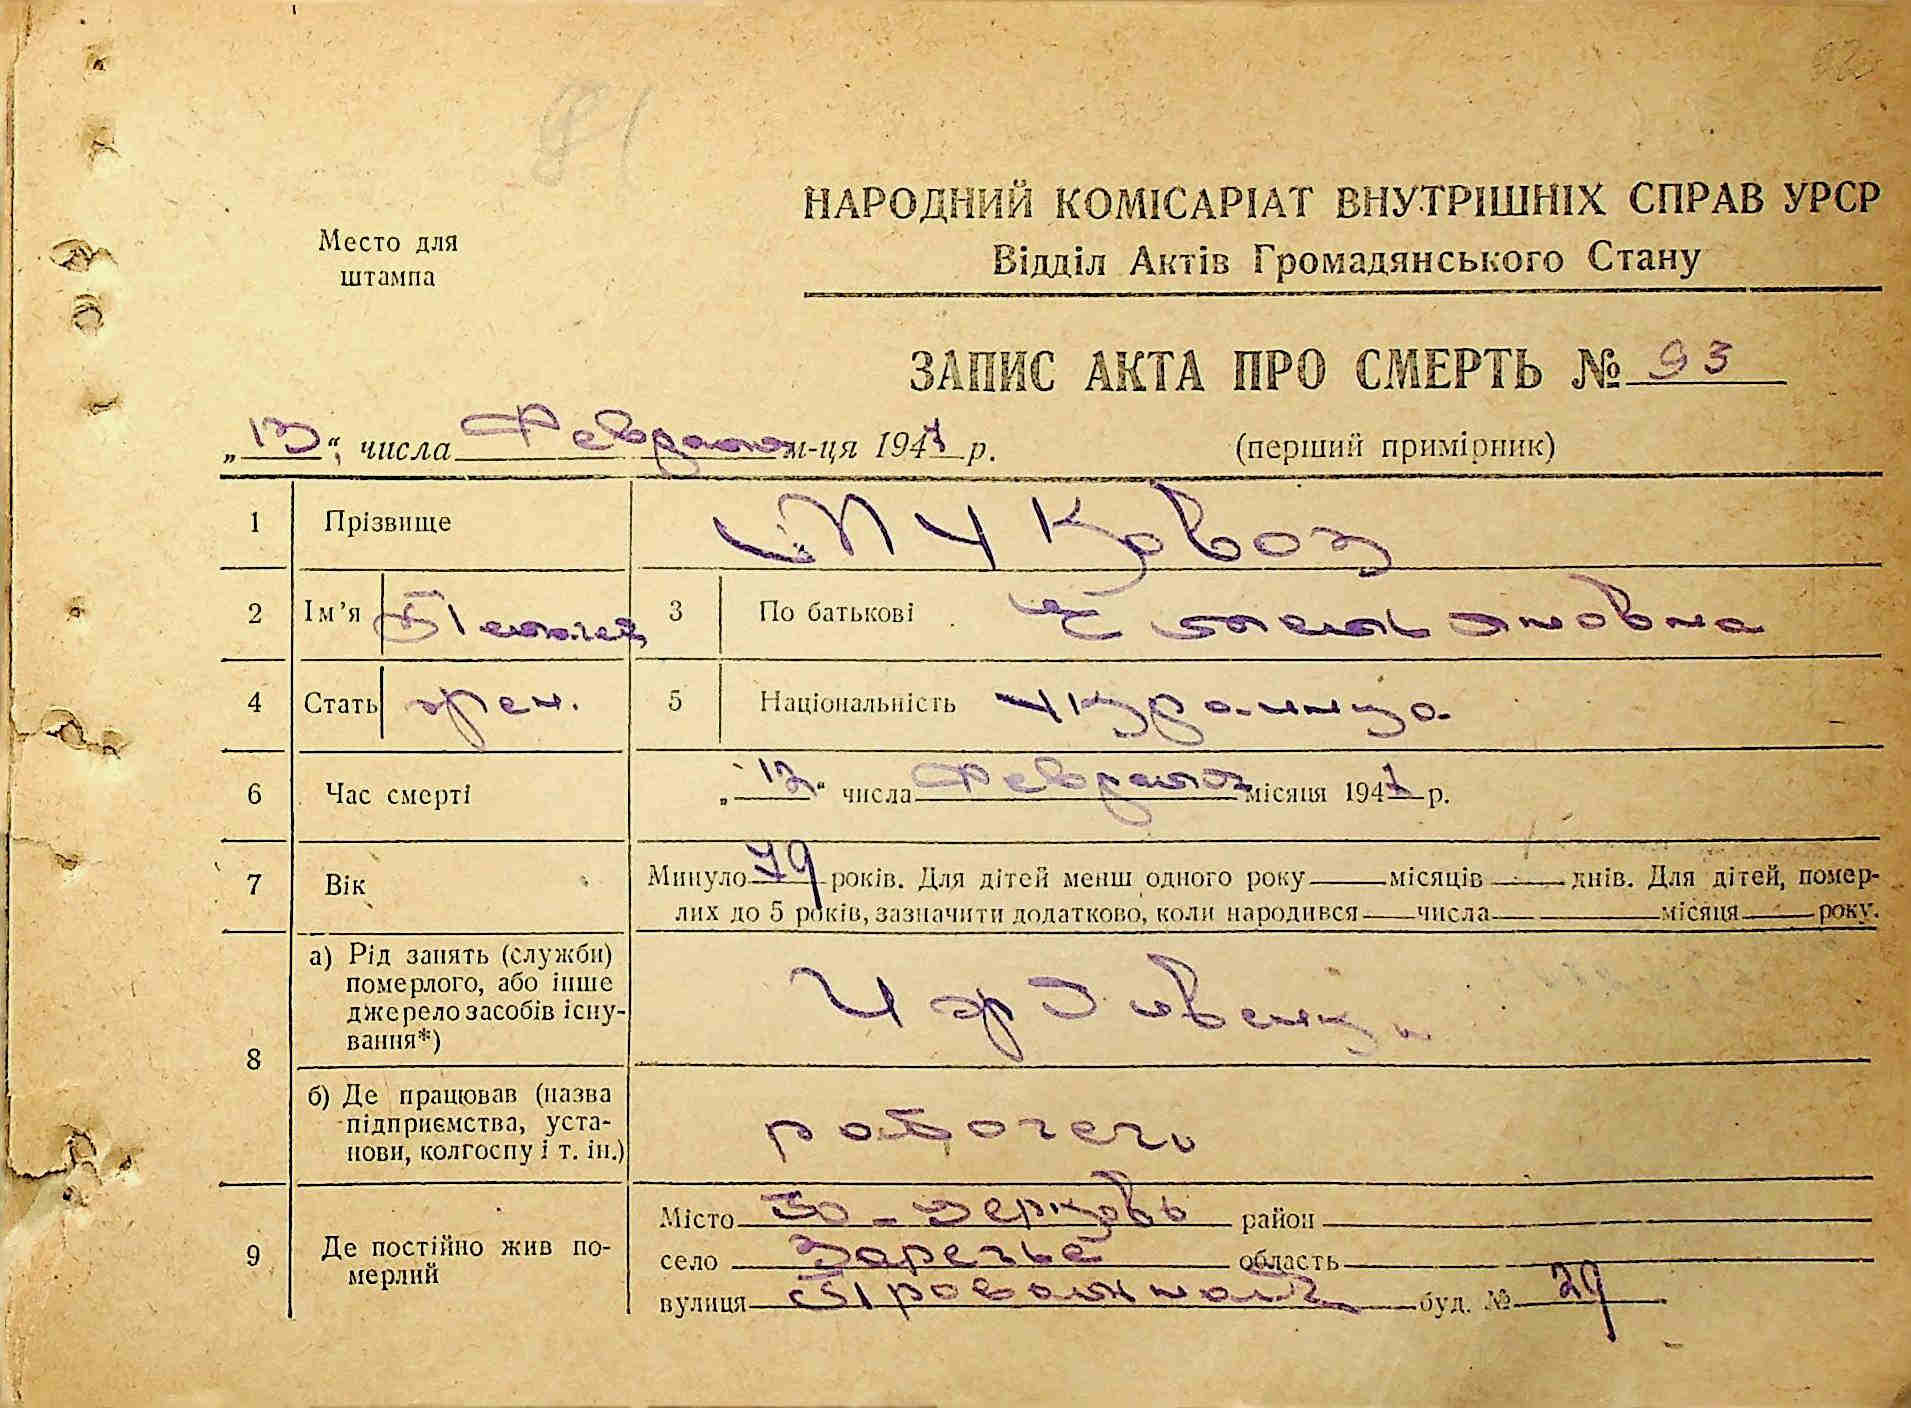 81
НАРОДНИЙ КОМІСАРІАТ ВНУТРІШНІХ СПРАВ УРСР
Місто для штампа
Відділ Актів Громадянського Стану
ЗАПИС АКТА ПРО СМЕРТЬ № 93
„13“ числа Февраля м-ця 1947 р. (перший примірник)
1 Прізвище Шуковоз
2 Ім'я Пелагея 3 По батькові Емельяновна
4 Стать жен. 5 Національність Украинка
6 Час смерті „12“ числа Февраля місяця 1947 р.
7 Вік Минуло 79 років. Для дітей менш одного року місяців днів. Для дітей, помер-
лих до 5 років, зазначити додатково, коли народився числа місяця року.
8 а) Рід занять (служби)
померлого, або інше
джерело засобів існу-
вання*) Иждивенец
б) Де працював (назва
підприємства, уста-
нови, колгоспу і т. ін.) рабочего
9 Де постійно жив по-
мерлий
Місто Б-Церковь район
село Заречье область
вулиця Провальная буд. № 29